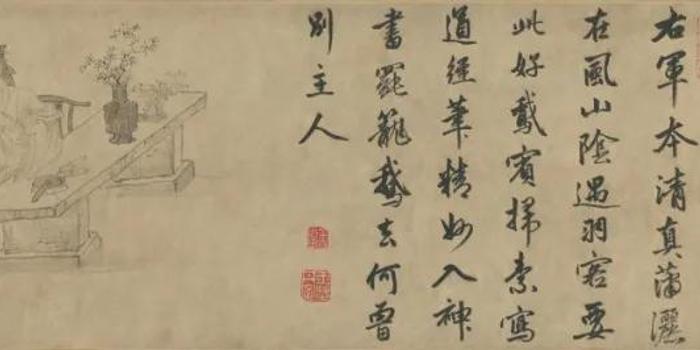 右軍本清真瀟灑
在風山陰遇羽客要
此好鵞賓掃素寫
道經筆精妙入神
書罷籠鵞去何曾
別主人